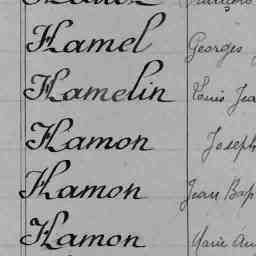 Hamel Georges
Hamelin Louis Jea
Hamon Joseph
Hamon Jean Bap
Hamon Marie An